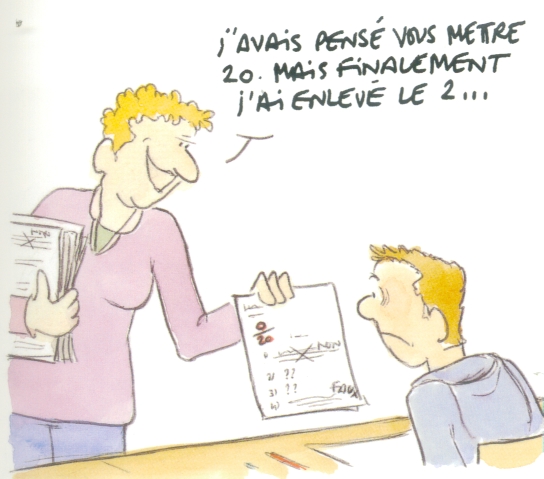 J'AVAIS PENSÉ VOUS METTRE
20. MAIS FINALEMENT
J'AI ENLEVÉ LE 2...
0
20
1) NON
2) ??
3) ??
4) FAUX